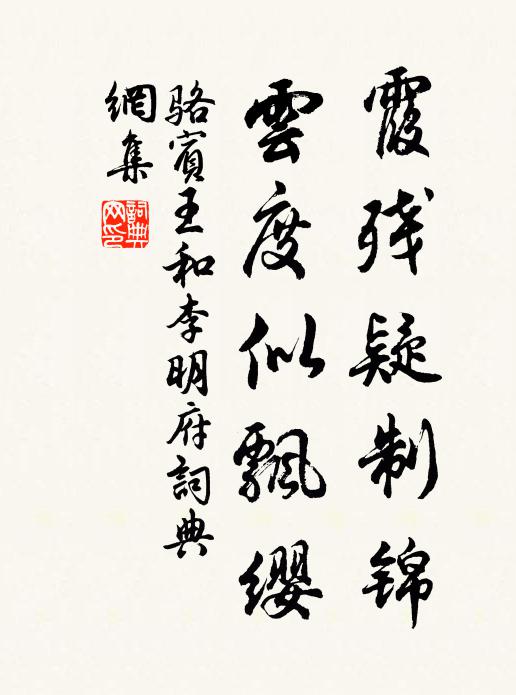 霞残疑制锦
雲度似飄缨
駱賓王和李明府詞典
網集
詞典
网印